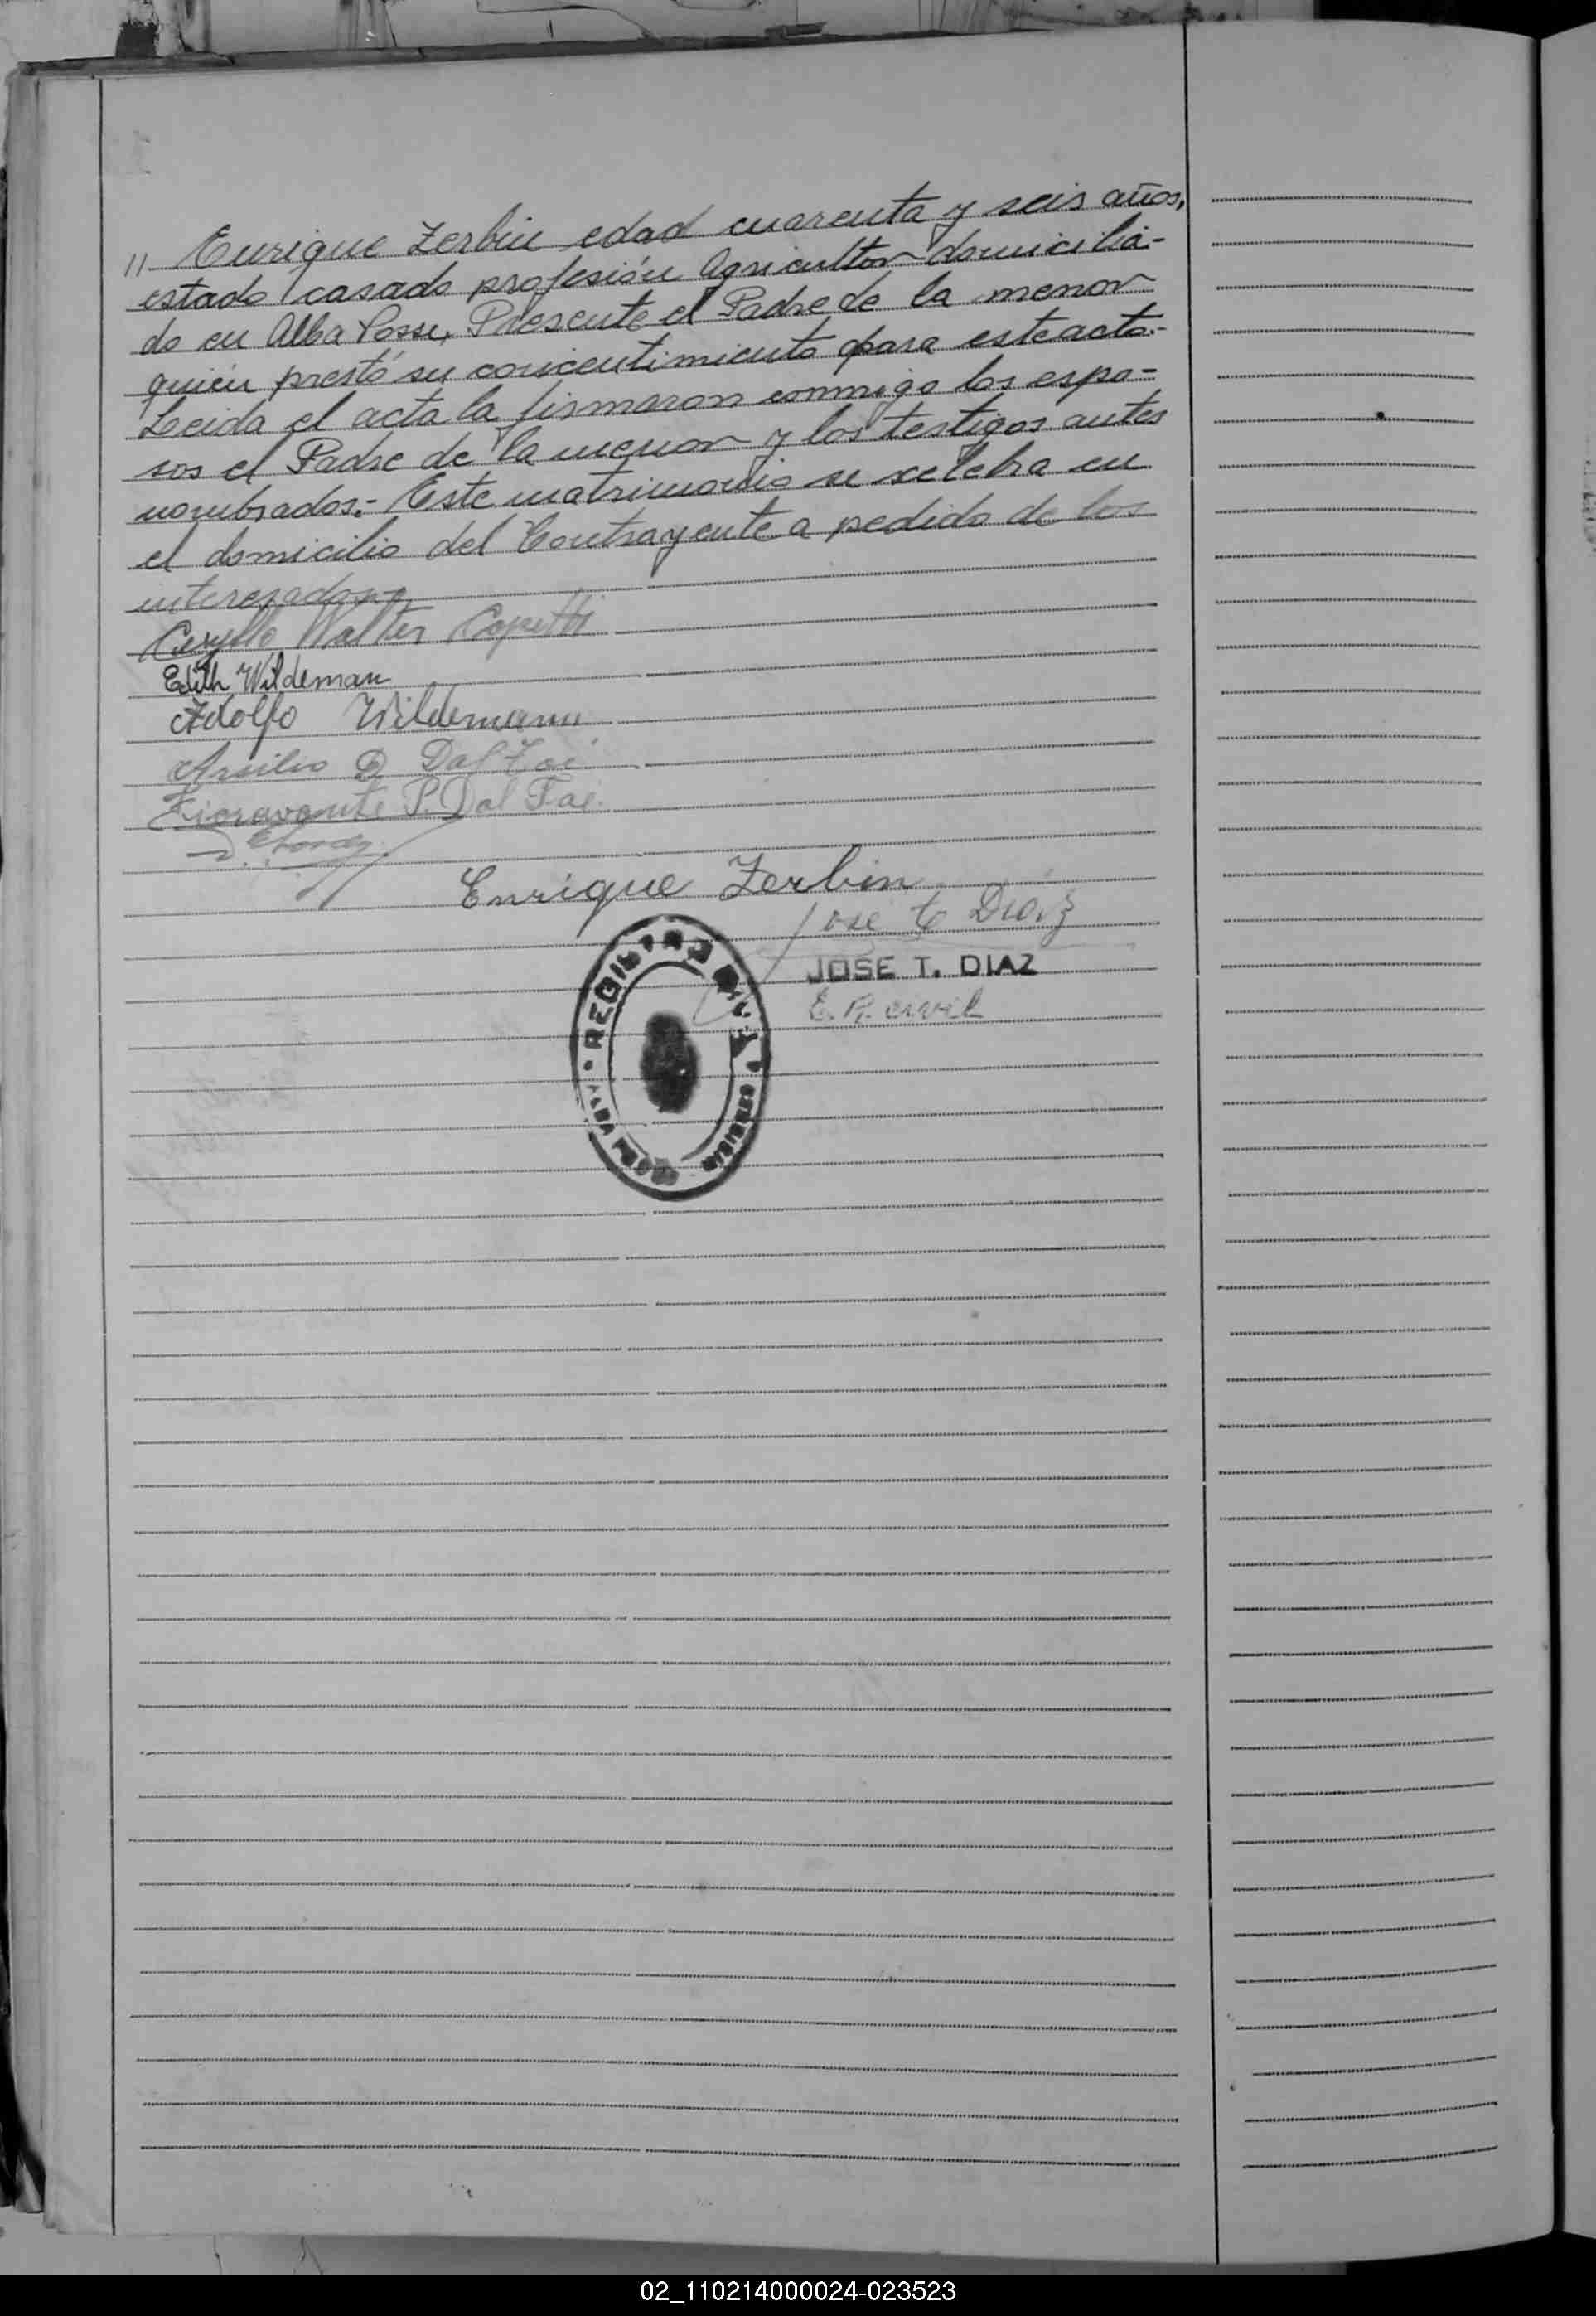 11 Enrique Zerbin edad cuarenta y seis años,
estado casado profesión Agricultor domicilia-
do en Alba Posse, Presente el Padre de la menor
quién prestó su concentimiento para este acto.-
Leida el acta la firmaron conmigo los espo-
sos el Padre de la menor y los testigos antes
nombrados.- Este matrimonio se selebra en
el domicilio del Contrayente a pedido de los
interezados.-
Walter Copetti
Edith Wildeman
Adolfo Wildemann
Arsilio D Dal Foi
Fioravante P. Dal Fae.
Enrique Zerbin
Jose t Diaz
JOSE T. DIAZ
E. R. civil
REGISTRO CIVIL
ALBA POSSE MISIONES
02_110214000024-023523